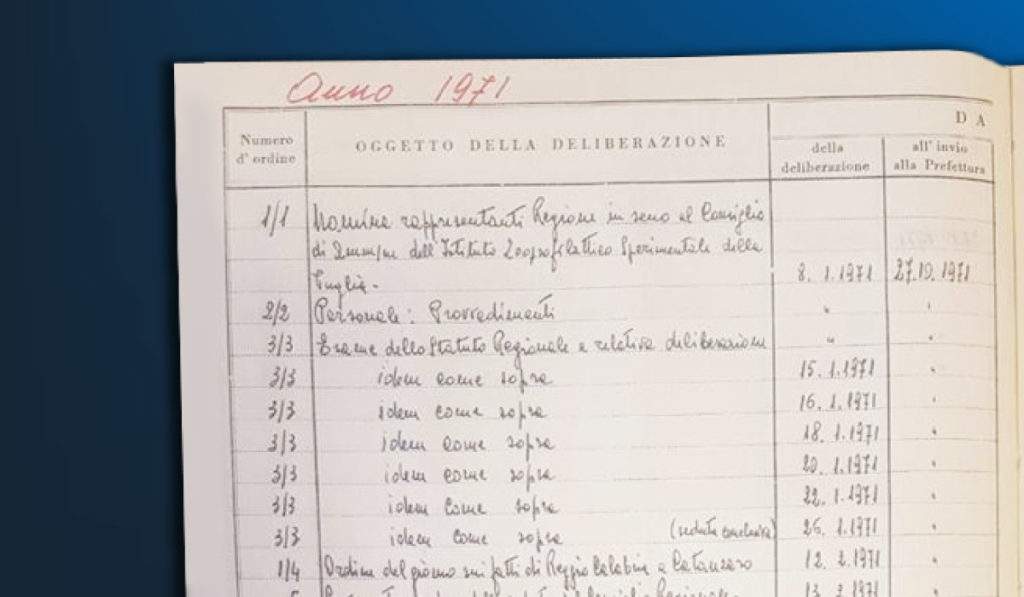 Anno 1971
D A
Numero d' ordine
OGGETTO DELLA DELIBERAZIONE
della deliberazione
all' invio alla Prefettura
1/1 Nomina rappresentanti Regione in seno al Consiglio
di Amm/ne dell'Istituto Zooprofilattico Sperimentale della
Puglia. 8. 1. 1971 27.10. 1971
2/2 Personale: Provvedimenti " "
3/3 Esame dello Statuto Regionale e relativa deliberazione " "
3/3 idem come sopra 15. 1. 1971 "
3/3 idem come sopra 16. 1. 1971 "
3/3 idem come sopra 18. 1. 1971 "
3/3 idem come sopra 20. 1. 1971 "
3/3 idem come sopra 22. 1. 1971 "
3/3 idem come sopra (seduta conclusiva) 26. 1. 1971 "
1/4 Ordine del giorno sui fatti di Reggio Calabria e Catanzaro 12. 2. 1971 "
13. 2. 1971